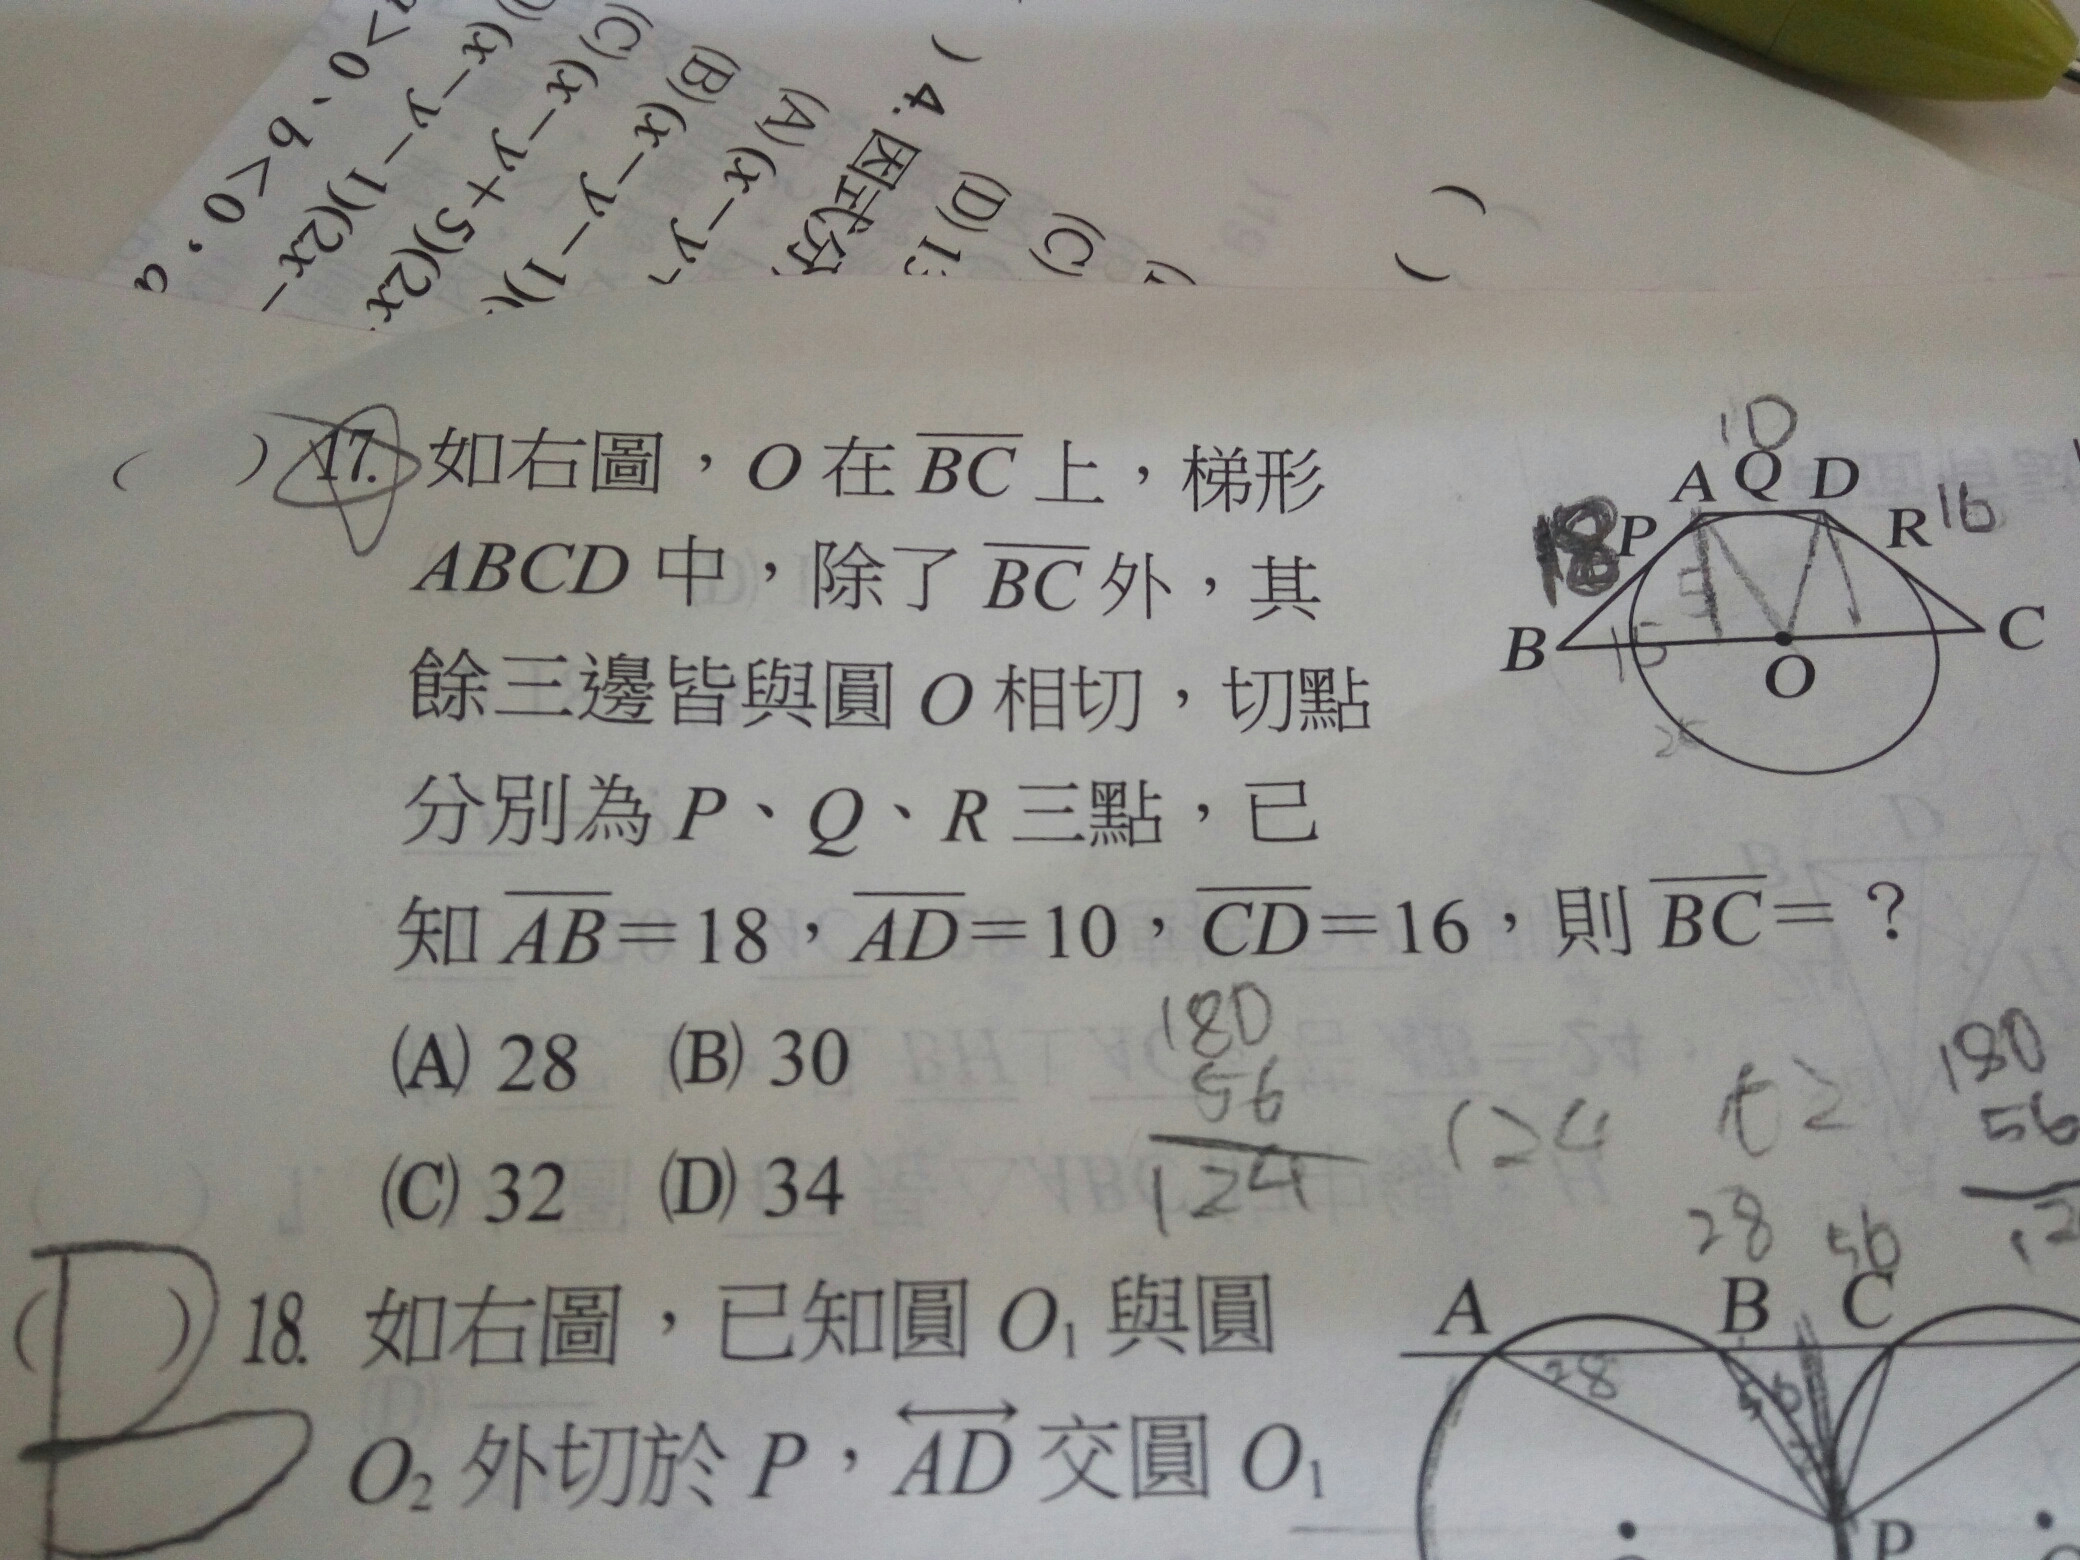 a>0、b<0，a
)(x－y－1)(2x－
(C)(x－y＋5)(2x
(B)(x－y－1)(
(A)(x－y
) 4. 因式分
(D)13
(C)
(
)
( ) 17. 如右圖，O 在 BC 上，梯形
ABCD 中，除了 BC 外，其
餘三邊皆與圓 O 相切，切點
分別為 P、Q、R 三點，已
知 AB＝18，AD＝10，CD＝16，則 BC＝？
(A) 28 (B) 30
(C) 32 (D) 34
10
A Q D
18 P R 16
B 15 C
O
180
56
124
124
180
56
12
28 56
( ) 18. 如右圖，已知圓 O₁ 與圓
B
O₂ 外切於 P，AD 交圓 O₁
A B C
28 56
P